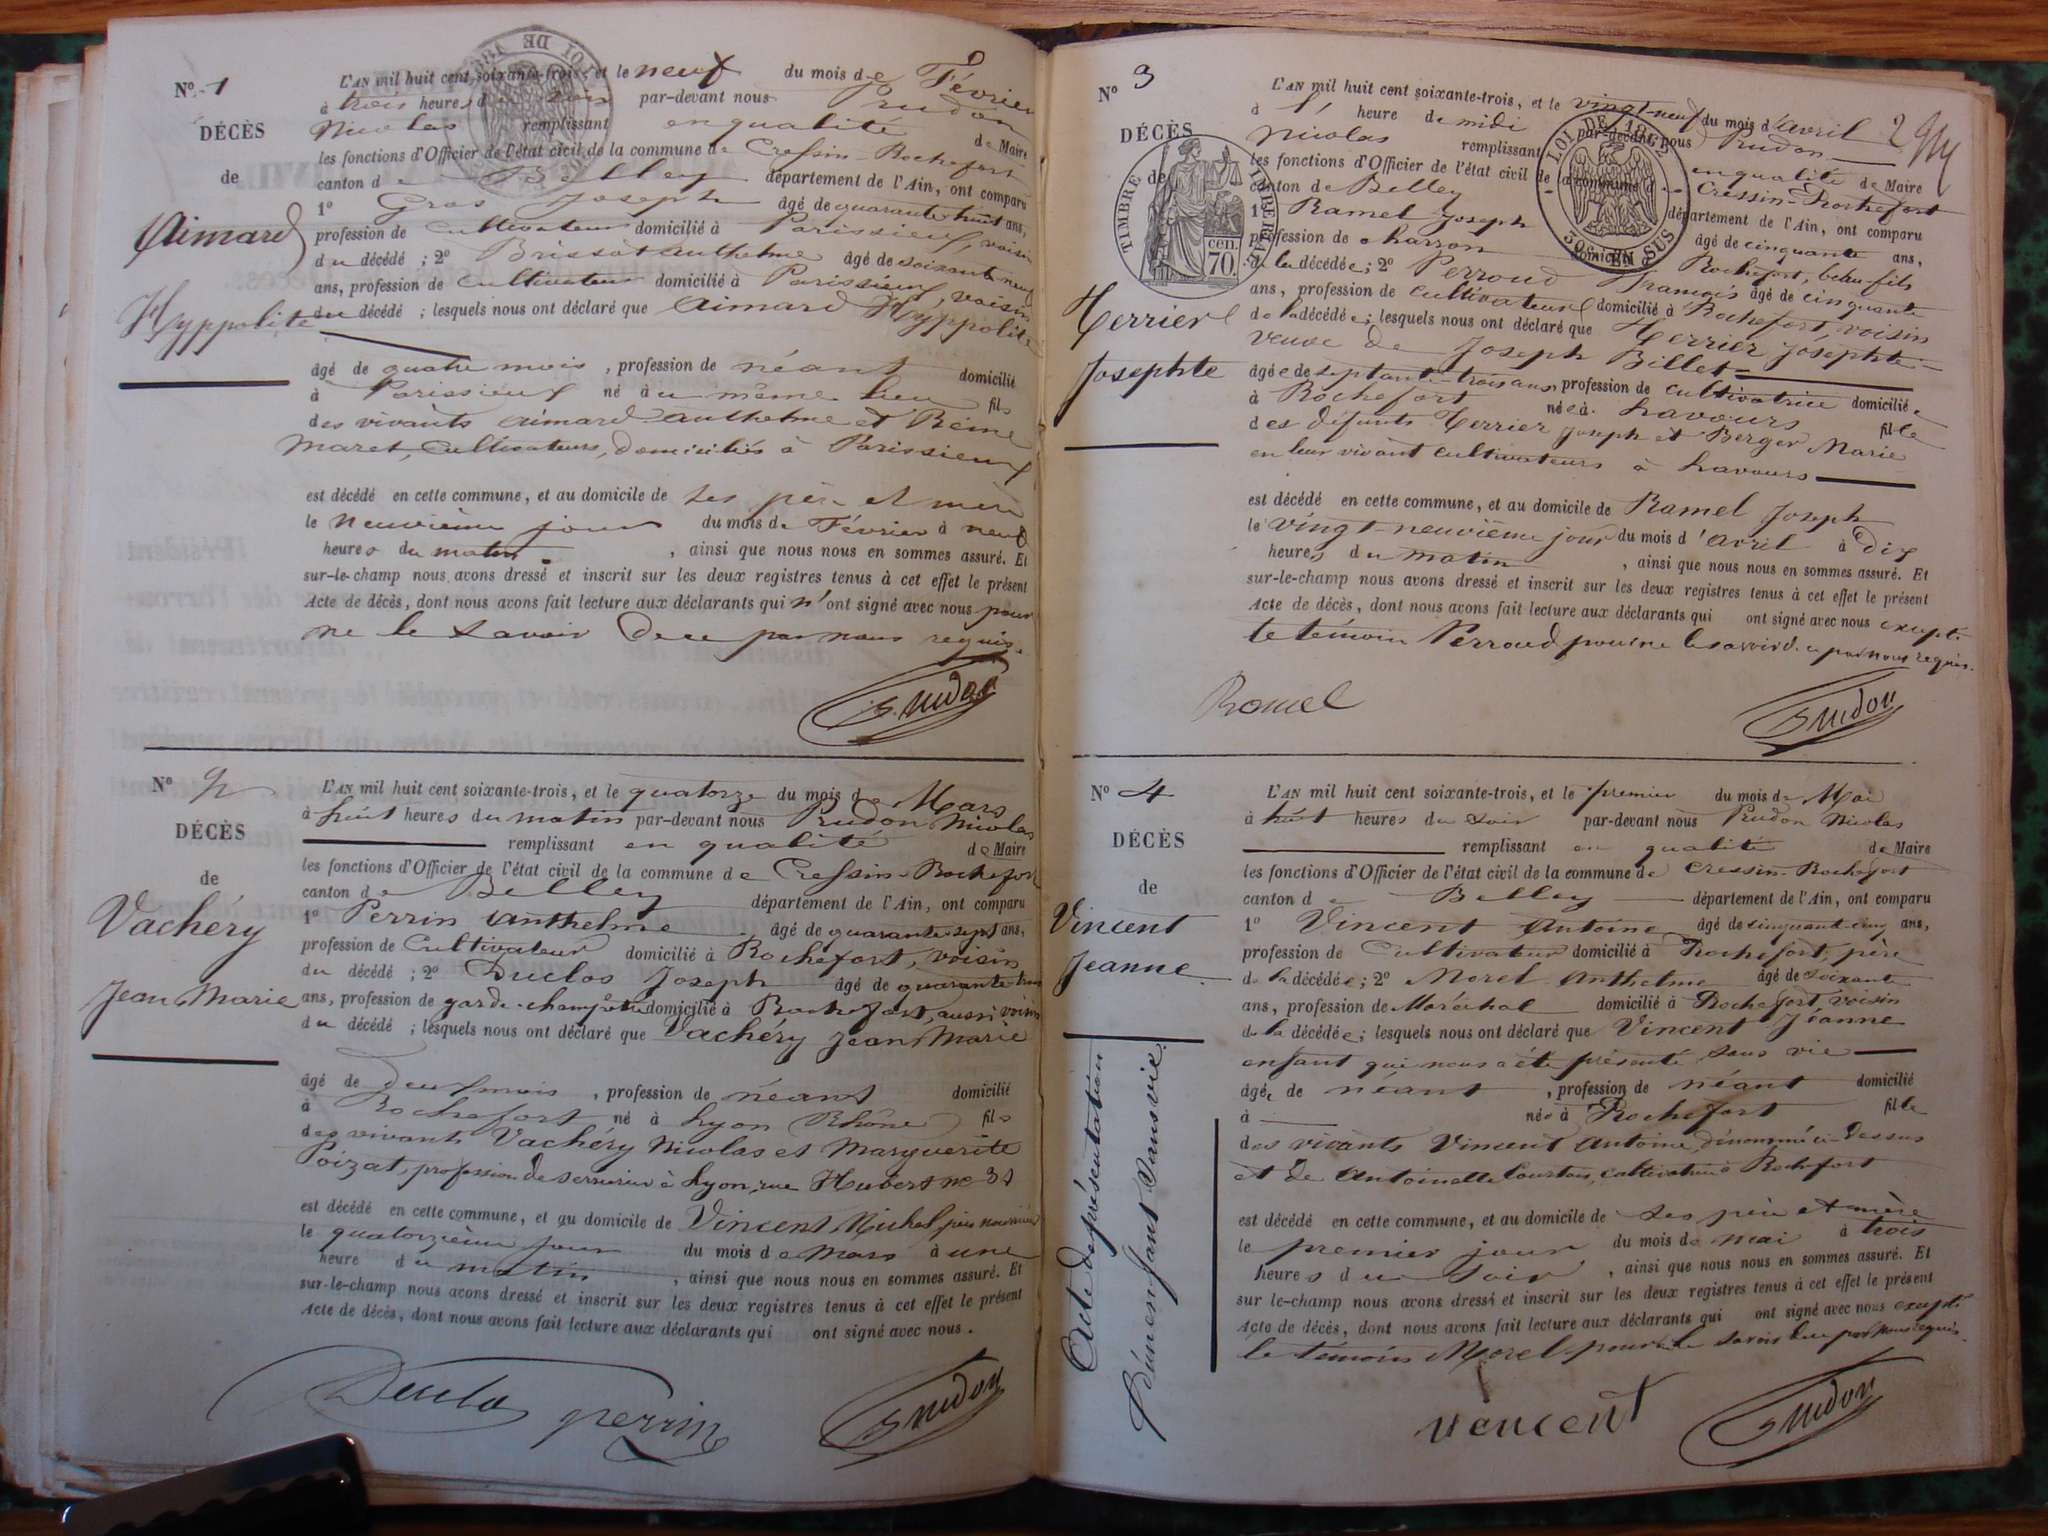 N.º 1
DÉCÈS
de
Aimard
Hyppolite
L'AN mil huit cent soixante-trois, et le neuf du mois de Février
à trois heures du soir par-devant nous Prudon
Nicolas remplissant en qualité de Maire
les fonctions d'Officier de l'état civil de la commune de Cressin-Rochefort
canton de Belley département de l'Ain, ont comparu
1º Gros Joseph âgé de quarante huit ans,
profession de cultivateur domicilié à Parissieux, voisin
du décédé ; 2º Brissot anthelme âgé de soixante neuf
ans, profession de cultivateur domicilié à Parissieux, voisin
du décédé ; lesquels nous ont déclaré que Aimard Hyppolite
âgé de quatre mois, profession de néant domicilié
à Parissieux né au même lieu fils
des vivants aimard anthelme et Reine
Maret, cultivateurs, domiciliés à Parissieux
est décédé en cette commune, et au domicile de ses père et mère
le neuvième jour du mois de Février à neuf
heures du matin, ainsi que nous nous en sommes assuré. Et
sur-le-champ nous avons dressé et inscrit sur les deux registres tenus à cet effet le présent
Acte de décès, dont nous avons fait lecture aux déclarants qui n'ont signé avec nous pour
ne le savoir de ce par nous requis.
Prudon
Nº 2
DÉCÈS
de
Vachéry
Jean Marie
L'AN mil huit cent soixante-trois, et le quatorze du mois de Mars
à huit heures du matin par-devant nous Prudon Nicolas
remplissant en qualité de Maire
les fonctions d'Officier de l'état civil de la commune de Cressin-Rochefort
canton de Belley département de l'Ain, ont comparu
1º Perrin Anthelme âgé de quarante sept ans,
profession de cultivateur domicilié à Rochefort, voisin
du décédé ; 2º Duclos Joseph âgé de quarante trois
ans, profession de garde-champêtre domicilié à Rochefort, aussi voisin
du décédé ; lesquels nous ont déclaré que Vachéry Jean Marie
âgé de deux mois, profession de néant domicilié
à Rochefort né à Lyon Rhône fils
des vivants Vachéry Nicolas et Marguerite
Poizat, profession de serrurier à Lyon, rue Hubert nº 31
est décédé en cette commune, et au domicile de Vincent Michel père nourricier
le quatorzième jour du mois de Mars à une
heure du matin, ainsi que nous nous en sommes assuré. Et
sur-le-champ nous avons dressé et inscrit sur les deux registres tenus à cet effet le présent
Acte de décès, dont nous avons fait lecture aux déclarants qui ont signé avec nous.
Duclo perrin Prudon
Nº 3
DÉCÈS
de
TIMBRE IMPERIAL
70 cen.
LOI DE 1862
30c EN SUS
Terrier
Josephte
L'AN mil huit cent soixante-trois, et le vingt-neuf du mois d'avril 2
à 1 heure de midi par-devant nous Prudon
Nicolas remplissant en qualité de Maire
les fonctions d'Officier de l'état civil de la commune de Cressin-Rochefort
canton de Belley département de l'Ain, ont comparu
1º Ramel Joseph âgé de cinquante ans,
profession de charron domicilié à Rochefort, beau fils
de la décédée ; 2º Perroud François âgé de cinquante
ans, profession de cultivateur domicilié à Rochefort, voisin
de la décédée ; lesquels nous ont déclaré que Terrier Josephte
veuve de Joseph Billet
âgée de septante-trois ans profession de cultivatrice domiciliée
à Rochefort née à Lavours fille
des défunts Terrier Joseph et Berger Marie
en leur vivant cultivateurs à Lavours
est décédé en cette commune, et au domicile de Ramel Joseph
le vingt-neuvième jour du mois d'avril à dix
heures du matin, ainsi que nous nous en sommes assuré. Et
sur-le-champ nous avons dressé et inscrit sur les deux registres tenus à cet effet le présent
Acte de décès, dont nous avons fait lecture aux déclarants qui ont signé avec nous excepté
le témoin Perroud pour ne le savoir de ce par nous requis.
Ramel Prudon
Nº 4
DÉCÈS
de
Vincent
Jeanne
Acte de présentation
d'un enfant sans vie.
L'AN mil huit cent soixante-trois, et le premier du mois de Mai
à huit heures du soir par-devant nous Prudon Nicolas
remplissant en qualité de Maire
les fonctions d'Officier de l'état civil de la commune de Cressin-Rochefort
canton de Belley département de l'Ain, ont comparu
1º Vincent Antoine âgé de cinquante cinq ans,
profession de cultivateur domicilié à Rochefort, père
de la décédée ; 2º Morel Anthelme âgé de soixante
ans, profession de Maréchal domicilié à Rochefort, voisin
de la décédée ; lesquels nous ont déclaré que Vincent Jeanne
enfant qui nous a été présenté sans vie
âgée de néant, profession de néant domicilié
à née à Rochefort fille
des vivants Vincent Antoine dénommé ci-dessus
et de Antoinette Courtois, cultivateurs à Rochefort
est décédé en cette commune, et au domicile de ses père et mère
le premier jour du mois de mai à trois
heures du soir, ainsi que nous nous en sommes assuré. Et
sur le-champ nous avons dressé et inscrit sur les deux registres tenus à cet effet le présent
Acte de décès, dont nous avons fait lecture aux déclarants qui ont signé avec nous excepté
le témoin Morel pour ne le savoir de ce par nous requis.
vencent Prudon